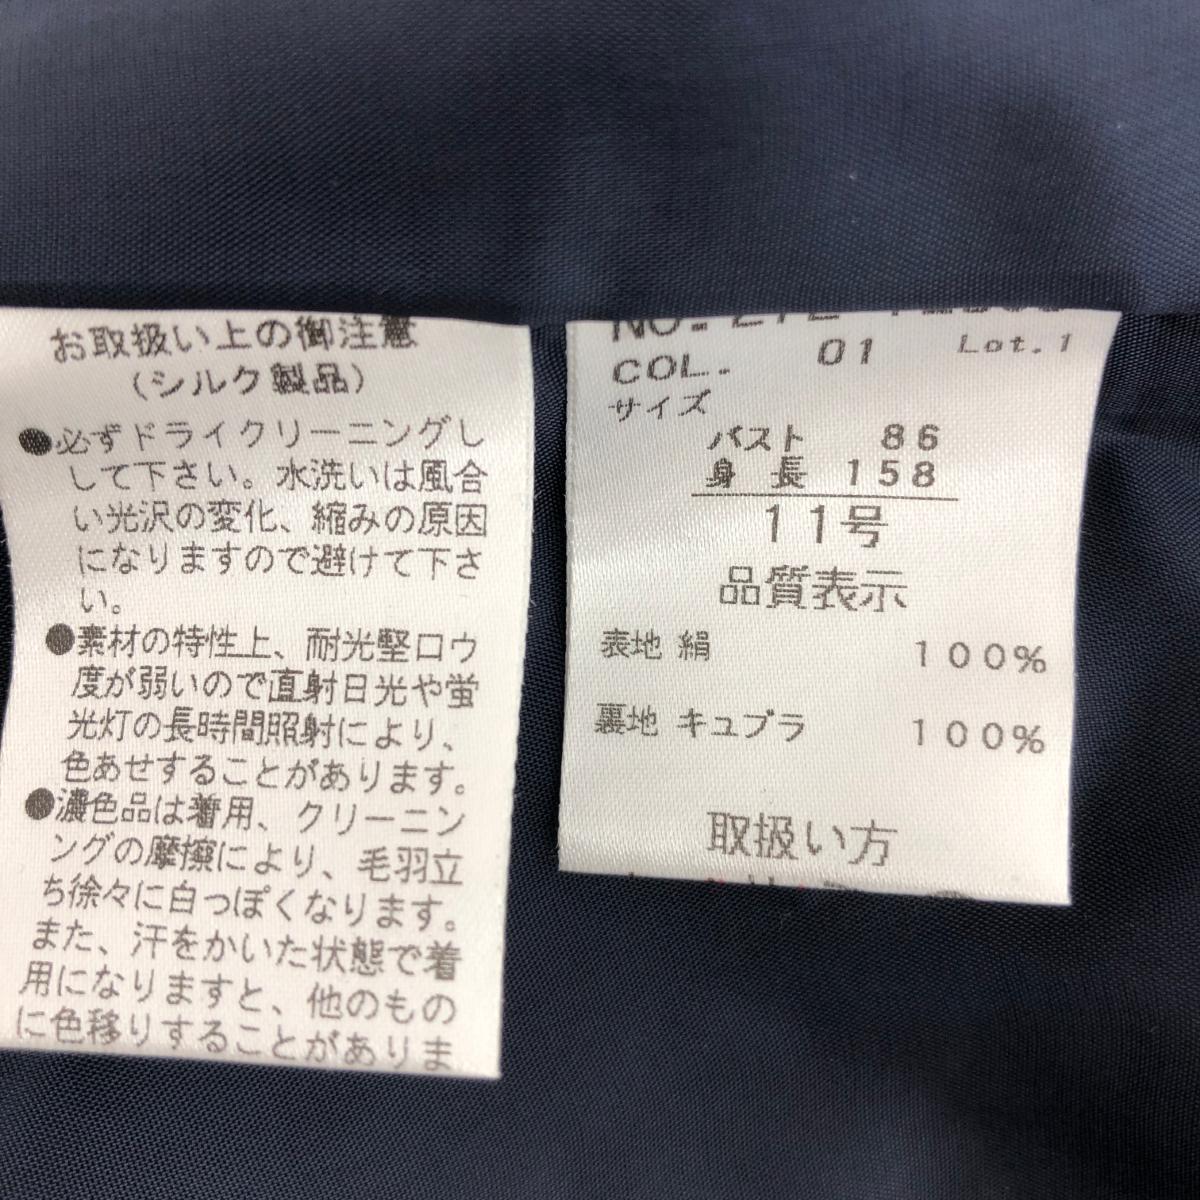 お取扱い上の御注意
(シルク製品)
●必ずドライクリーニングし
して下さい。水洗いは風合
い光沢の変化、縮みの原因
になりますので避けて下さ
い。
●素材の特性上、耐光堅ロウ
度が弱いので直射日光や蛍
光灯の長時間照射により、
色あせすることがあります。
●濃色品は着用、クリーニン
ングの摩擦により、毛羽立
ち徐々に白っぽくなります。
また、汗をかいた状態で着
用になりますと、他のもの
に色移りすることがありま
COL. 01 Lot.1
サイズ
バスト 86
身長 158
11号
品質表示
表地 絹 100%
裏地 キュプラ 100%
取扱い方